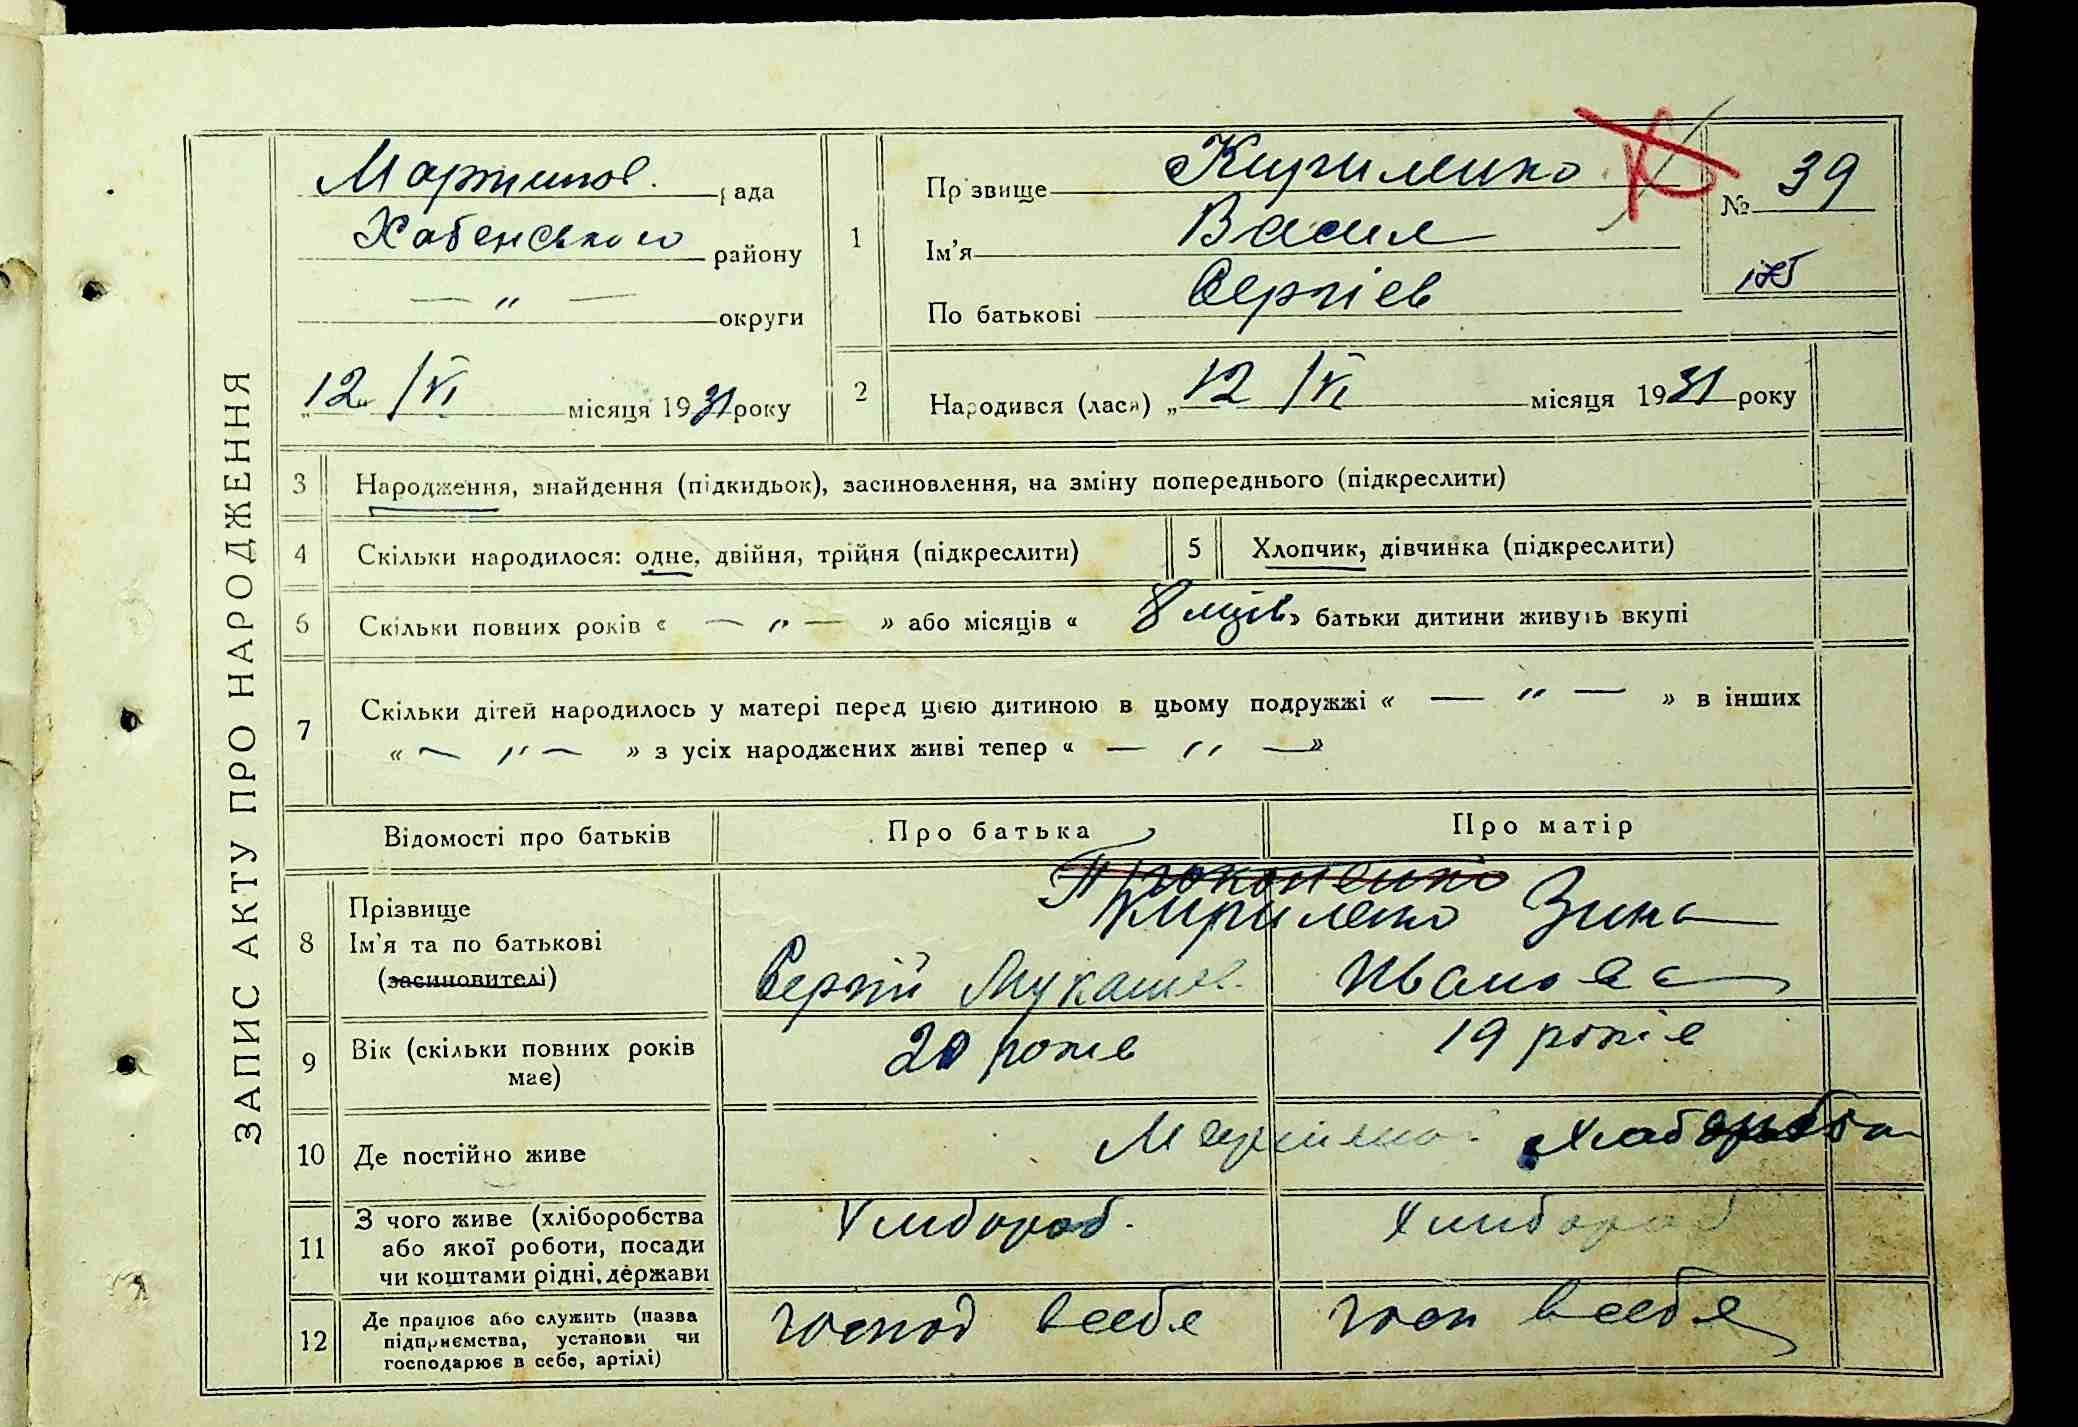 ЗАПИС АКТУ ПРО НАРОДЖЕННЯ
Мартинов. рада
Хабенського району
— " — округи
"12" /VI місяця 1931 року
1
Прізвище Кириленко
Ім'я Васил
По батькові Сергіев
№ 39
175
2
Народився (лася) "12 /VI місяця 1931 року
3 Народження, знайдення (підкидьок), засиновлення, на зміну попереднього (підкреслити)
4 Скільки народилося: одне, двійня, трійня (підкреслити)
5 Хлопчик, дівчинка (підкреслити)
6 Скільки повних років « — " — » або місяців « 8 мців » батьки дитини живуть вкупі
7 Скільки дітей народилось у матері перед цією дитиною в цьому подружжі « — " — » в інших
« — " — » з усіх народжених живі тепер « — " — »
Відомості про батьків Про батька Про матір
8 Прізвище
Ім'я та по батькові
(засиновителі)
Кириленко Зина
Сергій Лукашев. Ивановна
9 Вік (скільки повних років
має)
20 років 19 років
10 Де постійно живе
11 З чого живе (хліборобства
або якої роботи, посади
чи коштами рідні, держави
Хлибороб. Хлибороб
12 Де працює або служить (назва
підприємства, установи чи
господарює в себе, артілі)
господ всебе госп всебе